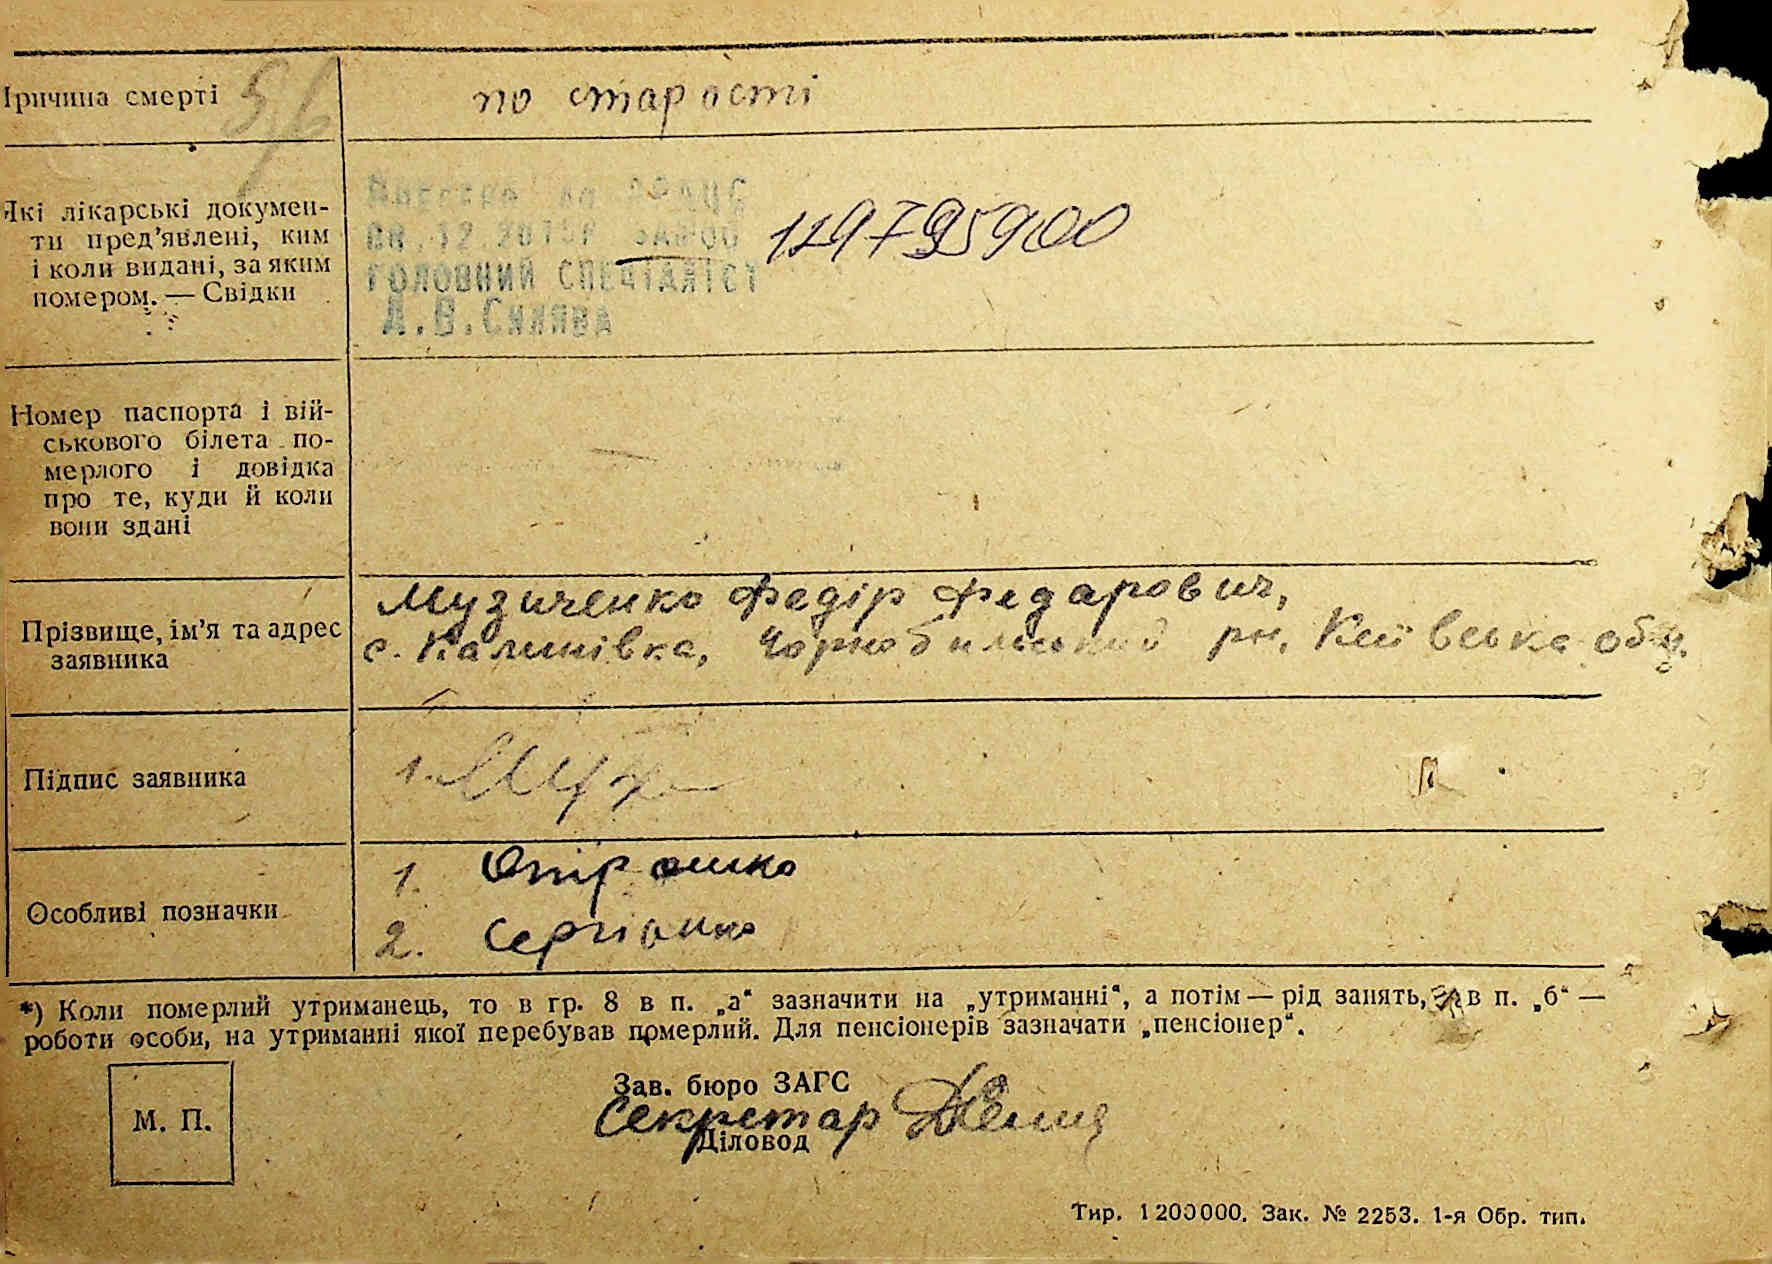 Причина смерті
по старості
Які лікарські докумен-
ти пред'явлені, ким
і коли видані, за яким
номером. — Свідки
Внесено до
ГОЛОВНИЙ СПЕЦІАЛІСТ
А.В.Силява
Номер паспорта і вій-
ськового білета по-
мерлого і довідка
про те, куди й коли
вони здані
Прізвище, ім'я та адрес
заявника
Музиченко Федір Федарович,
с. Калинівка, Чорнобильський рн. Київська обл.
Підпис заявника
1.
Особливі позначки
1. Опірошко
2. Сергієнко
*) Коли померлий утриманець, то в гр. 8 в п. „а“ зазначити на „утриманні“, а потім — рід занять, а в п. „б“ —
роботи особи, на утриманні якої перебував померлий. Для пенсіонерів зазначати „пенсіонер“.
М. П.
Зав. бюро ЗАГС
Секретар
Діловод
Тир. 1200000. Зак. № 2253. 1-я Обр. тип.